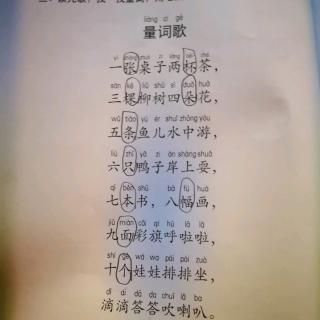 liàng cí gē
量词歌
yì zhāng zhuō zi liǎng bēi chá
一张桌子两杯茶，
sān kē liǔ shù sì duǒ huā
三棵柳树四朵花，
wǔ tiáo yú ér shuǐ zhōng yóu
五条鱼儿水中游，
liù zhī yā zi àn shàng shuǎ
六只鸭子岸上耍，
qī běn shū bā fú huà
七本书，八幅画，
jiǔ miàn cǎi qí hū lā lā
九面彩旗呼啦啦，
shí gè wá wa pái pái zuò
十个娃娃排排坐，
dī dī dā dā chuī lǎ ba
滴滴答答吹喇叭。